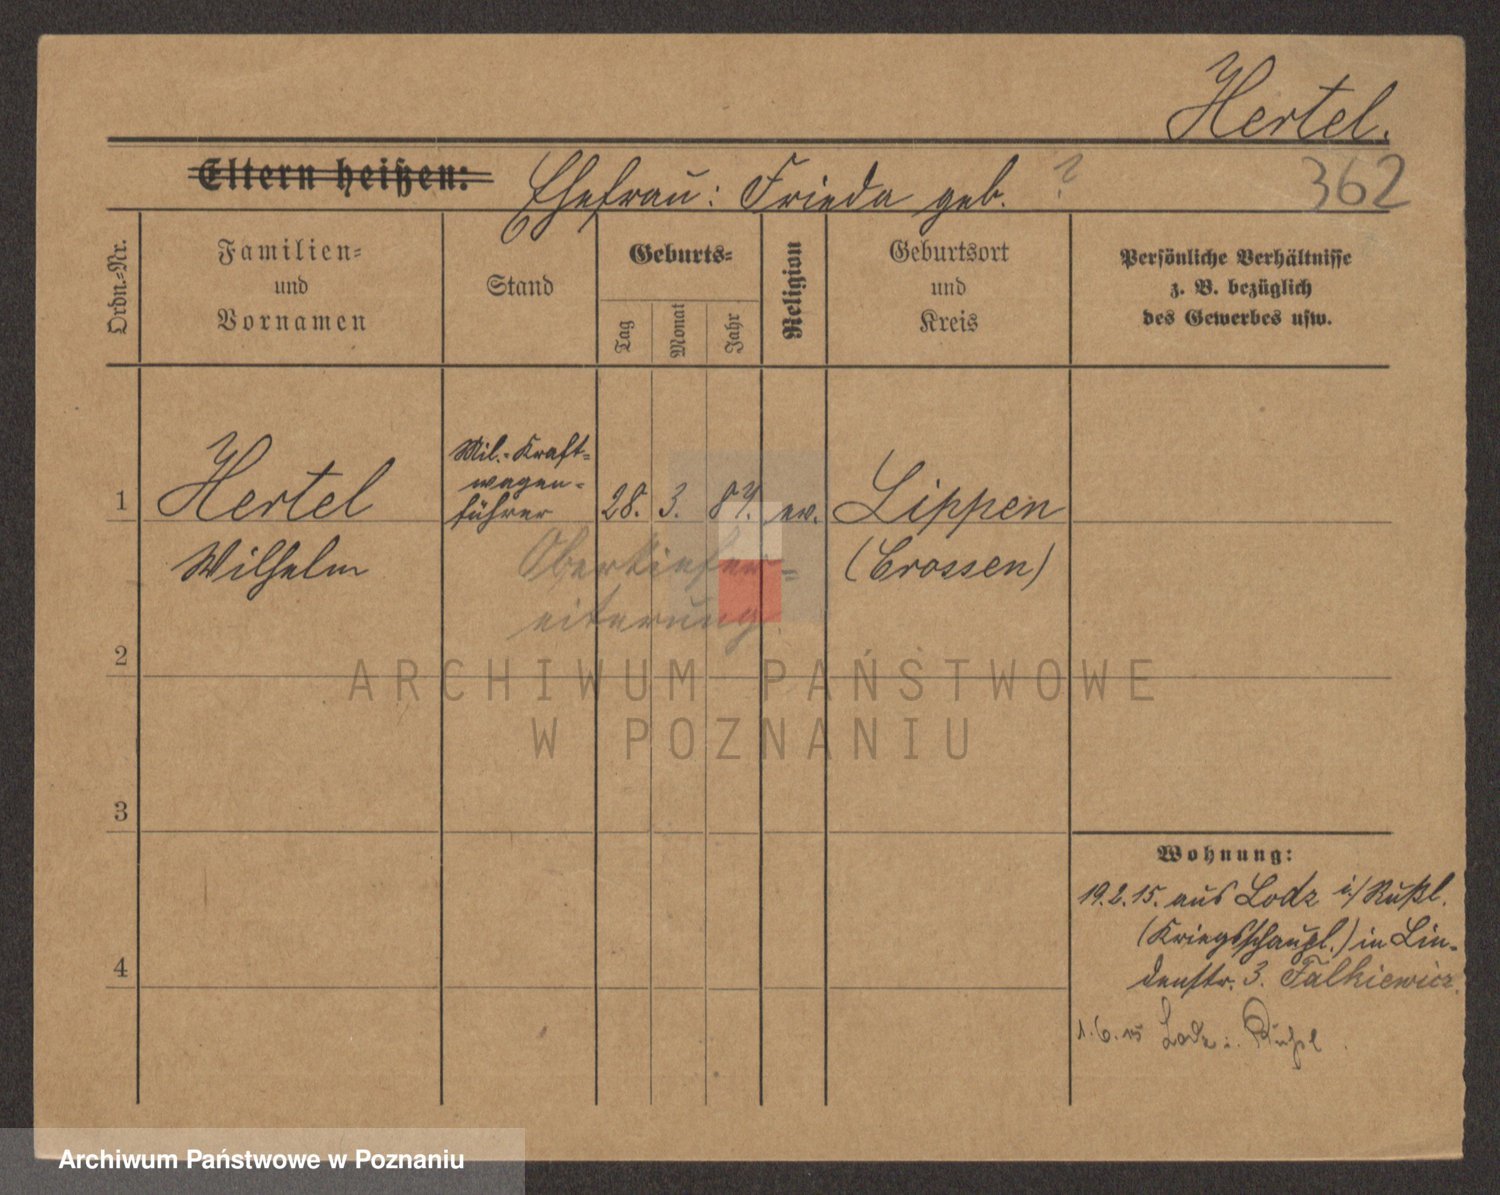 Hertel.
Eltern heißen: Ehefrau: Frieda geb. ?
362
Ordn.-Nr.
Familien-
und
Vornamen
Stand
Geburts-
Tag
Monat
Jahr
Religion
Geburtsort
und
Kreis
Persönliche Verhältnisse
z. B. bezüglich
des Gewerbes usw.
Mil.-Kraft-
wagen-
führer
1 Hertel 28. 3. 87. ev. Lippen
Wilhelm (Crossen)
Oberkiefer-
eiterung
2
3
4
Wohnung:
19.2.15. aus Lodz i/Rußl.
(Kriegsschaupl.) in Lin-
denstr. 3. Falkiewicz.
1.6.15 Lodz i. Rußl.
ARCHIWUM PAŃSTWOWE
W POZNANIU
Archiwum Państwowe w Poznaniu